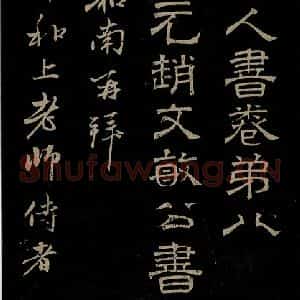 人書卷弟八
元趙文敏公書
和南再拜
和上老師侍者
Shufawang.CN